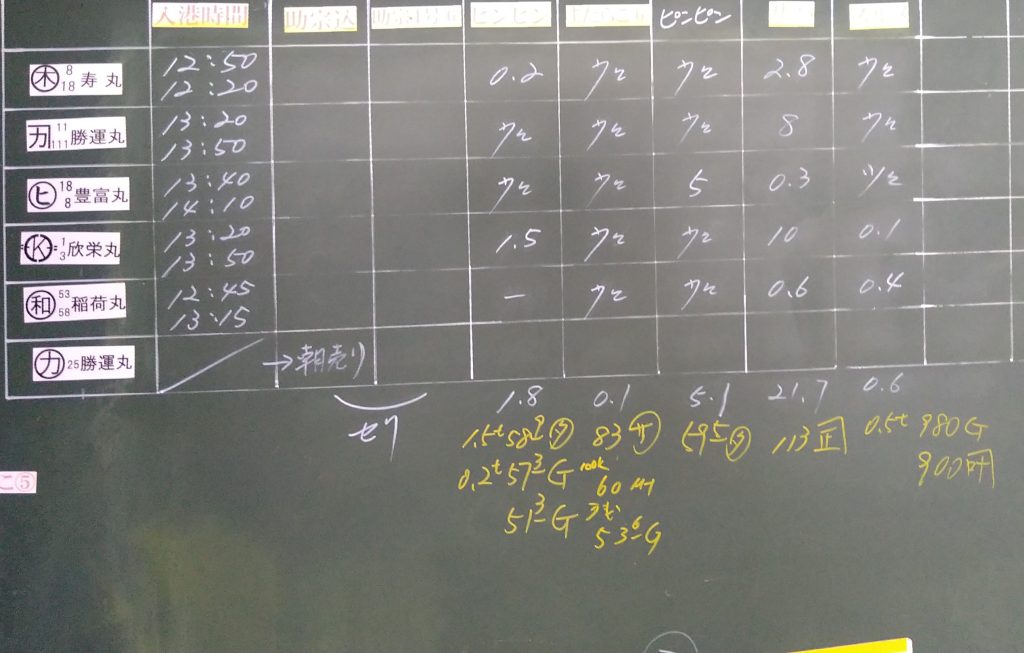 入港時間 助宗込 ピンピン ピンピン
木 8 18 寿丸 12:50 12:20 0.2 少々 少々 2.8 少々
カ 11 111 勝運丸 13:20 13:50 少々 少々 少々 8 少々
ヒ 18 8 豊富丸 13:40 14:10 少々 少々 5 0.3 少々
K 1 3 欣栄丸 13:20 13:50 1.5 少々 少々 10 0.1
和 53 58 稲荷丸 12:45 13:15 — 少々 少々 0.6 0.4
カ 25 勝運丸 →朝売り
セリ 1.8 0.1 5.1 21.7 0.6
1.5t 58 83 59 113 0.5t 980G
0.2t 57 3 G 100k 60 900
51 3 G 53 6 G
こ⑤